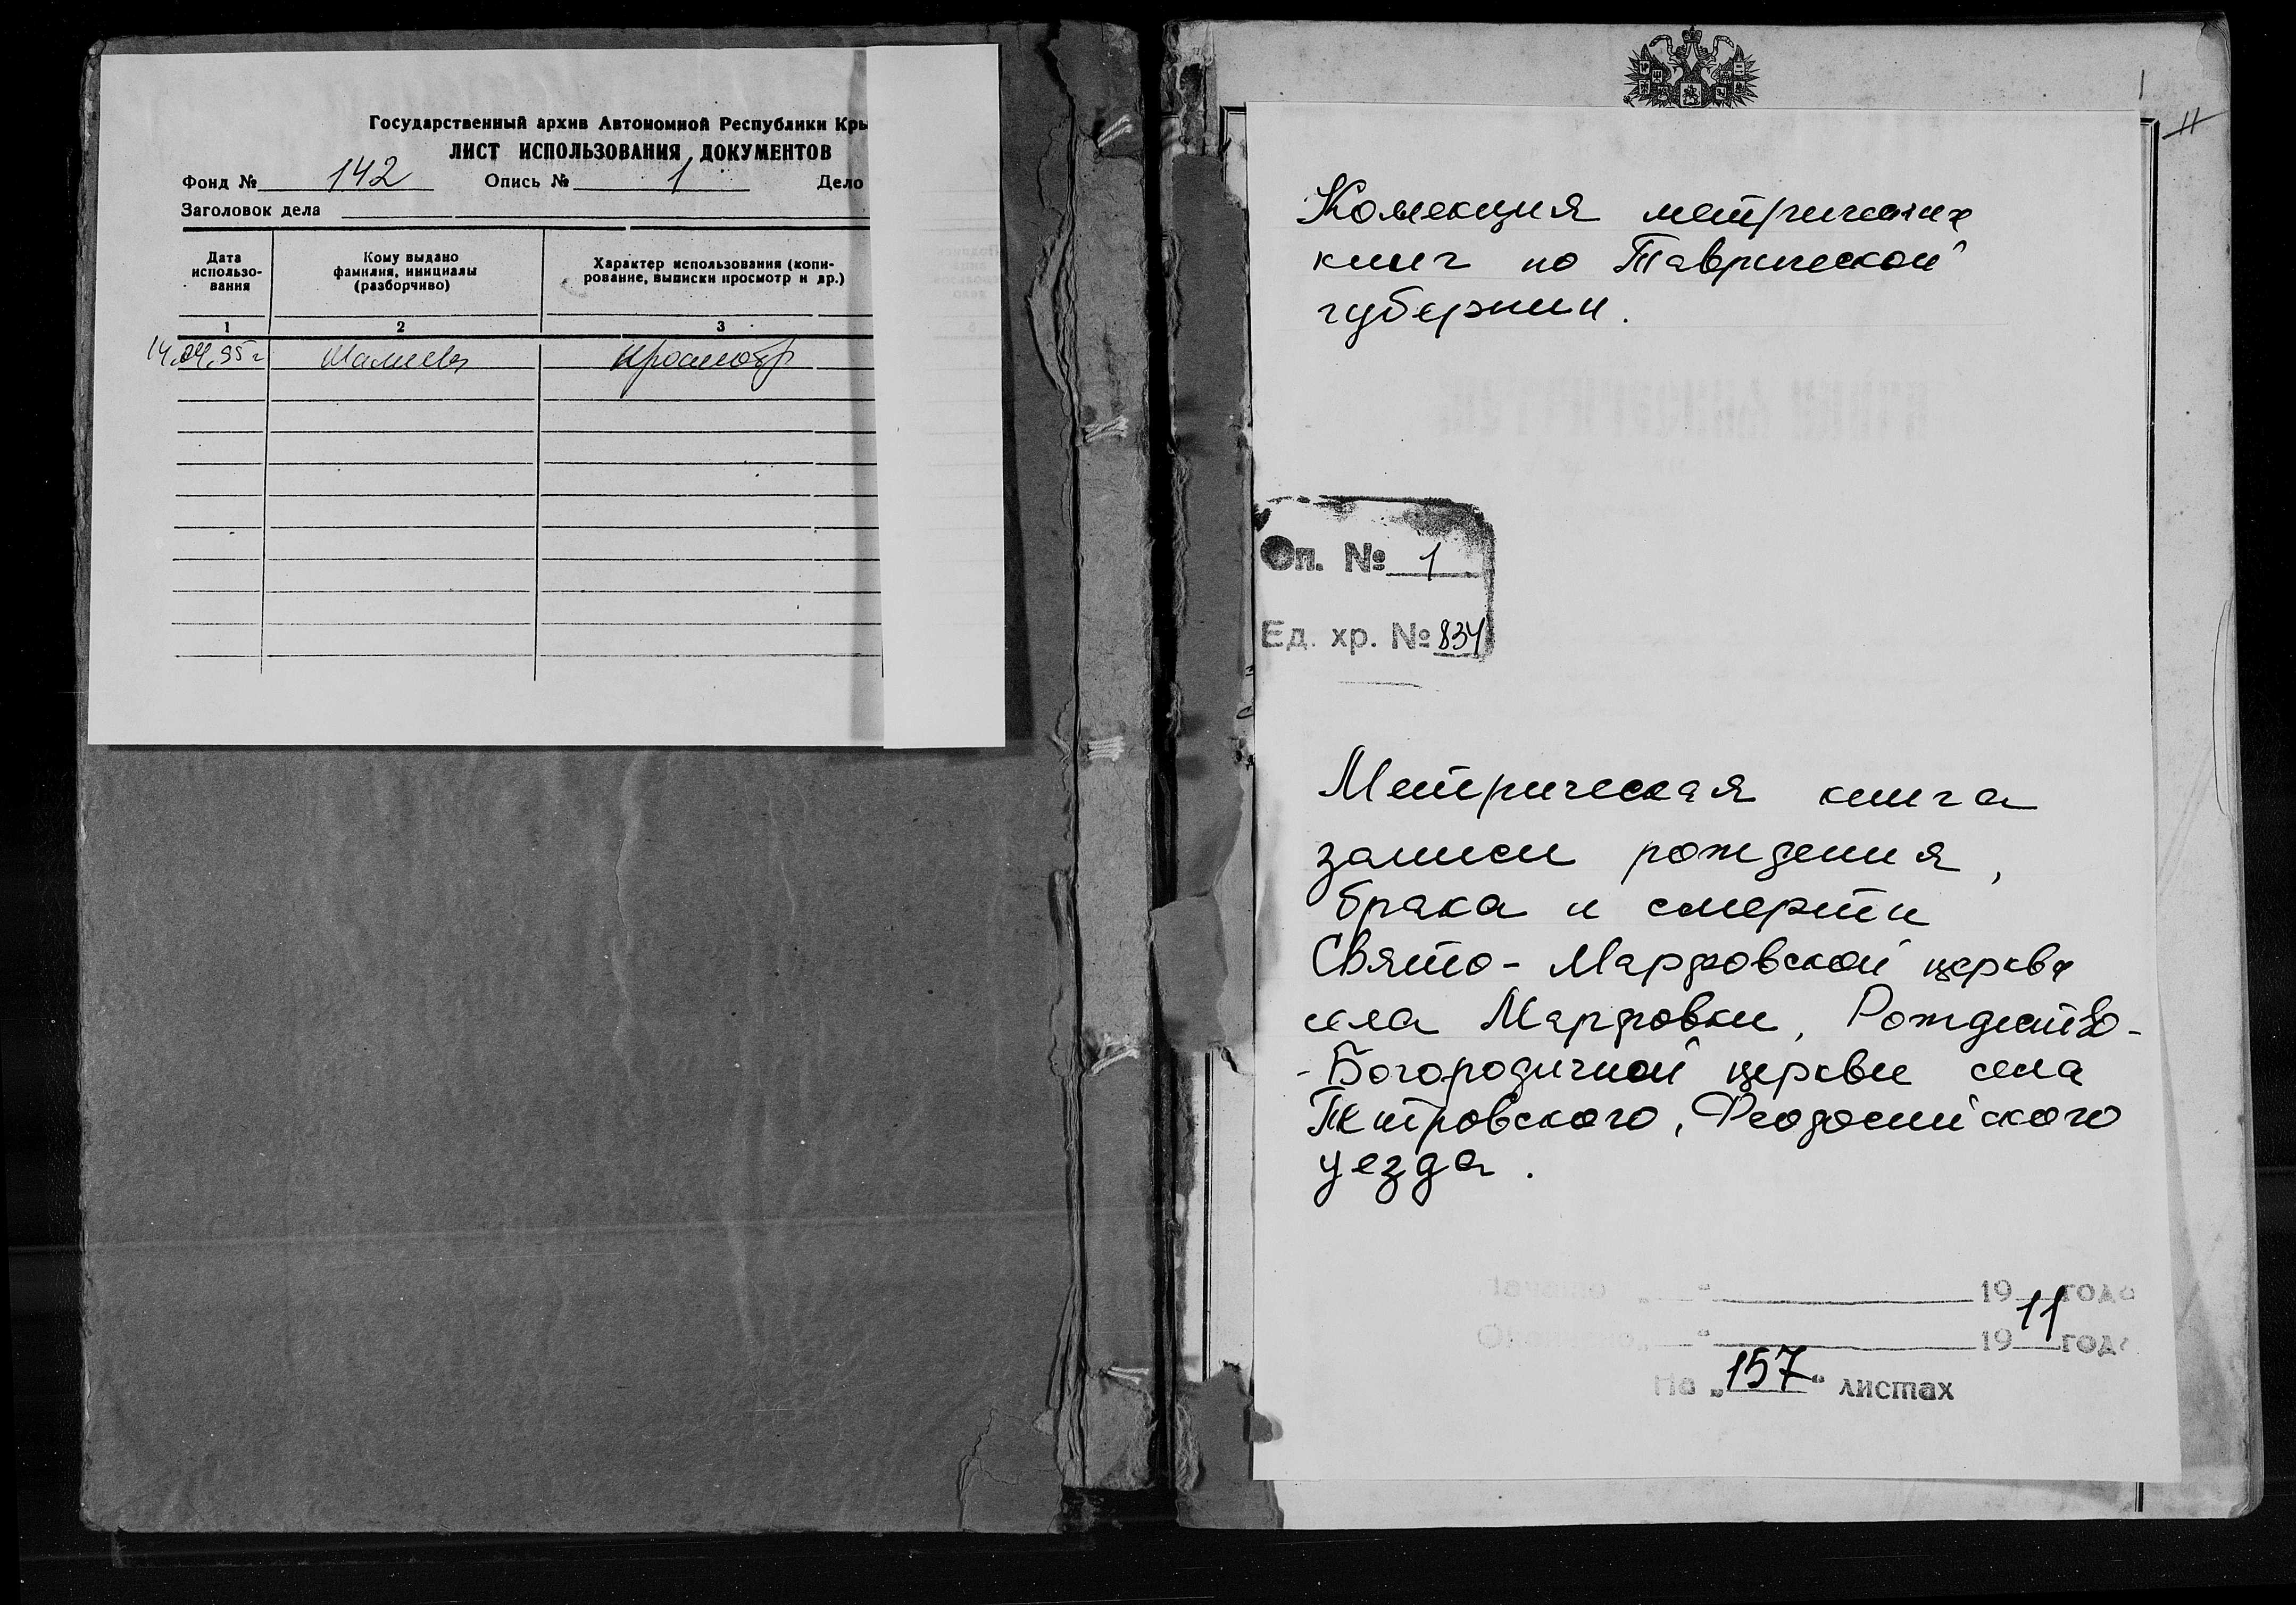 Государственный архив Автономной Республики Кры
ЛИСТ ИСПОЛЬЗОВАНИЯ ДОКУМЕНТОВ
Фонд № 142 Опись № 1 Дело
Заголовок дела
Дата использо-
вания
Кому выдано
фамилия, инициалы
(разборчиво)
Характер использования (копи-
рование, выписки просмотр и др.)
1 2 3
14.04.95 г просмотр
11
Коллекция метрических
книг по Таврической
губернии.
Оп. № 1
Ед. хр. № 834
Метрическая книга
записи рождения,
брака и смерти
Свято-Марфовской церкви
села Марфовки, Рождество-
-Богородичной церкви села
Петровского, Феодосийского
уезда.
Начато „ “ 19 года
Окончено „ “ 19 11 года
На „157“ листах